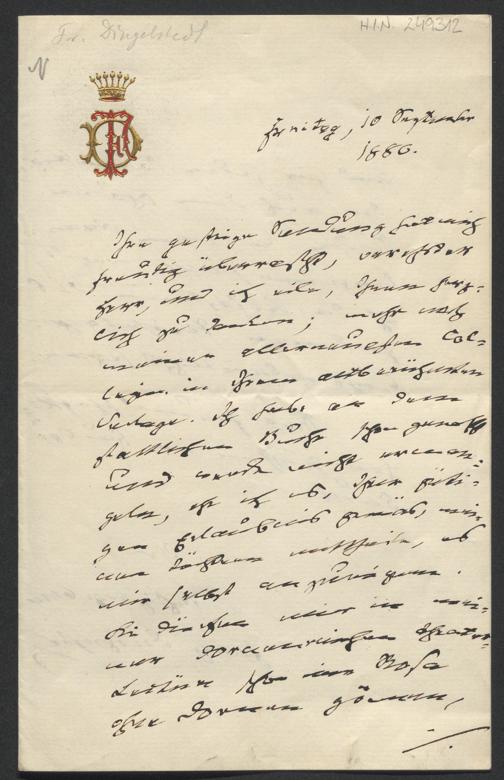 Fr. Dingelstedt
H.I.N. 249312
N
Freitag, 10 September
1880.
Ihre gestrige Sendung hat mich
freudig überrascht, verehrter
Herr, und ich eile, Ihnen herz-
lich zu danken; mehr noch
meiner allerneuesten Col-
legin in Ihrem altberühmten
Verlage. Ich habe an dem
stattlichen Buche schon genascht
und werde nicht erman-
geln, ehe ich es, Ihrer güti-
gen Erlaubnis gemäß, mei-
nen Töchtern mittheile, es
mir selbst anzueignen.
Sie dürfen mir in mei-
ner dornenreichen Theater-
Lectüre schon eine Rosa
ohne Dornen gönnen,